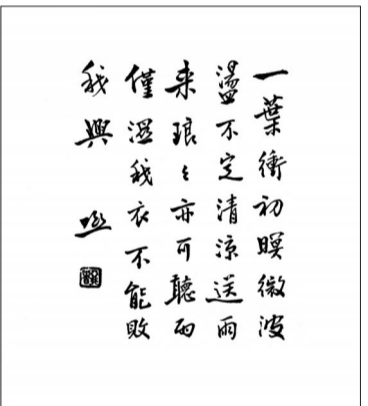 一葉衝初暝微波
盪不定清涼送雨
来琅〻亦可聽雨
僅濕我衣不能敗
我興